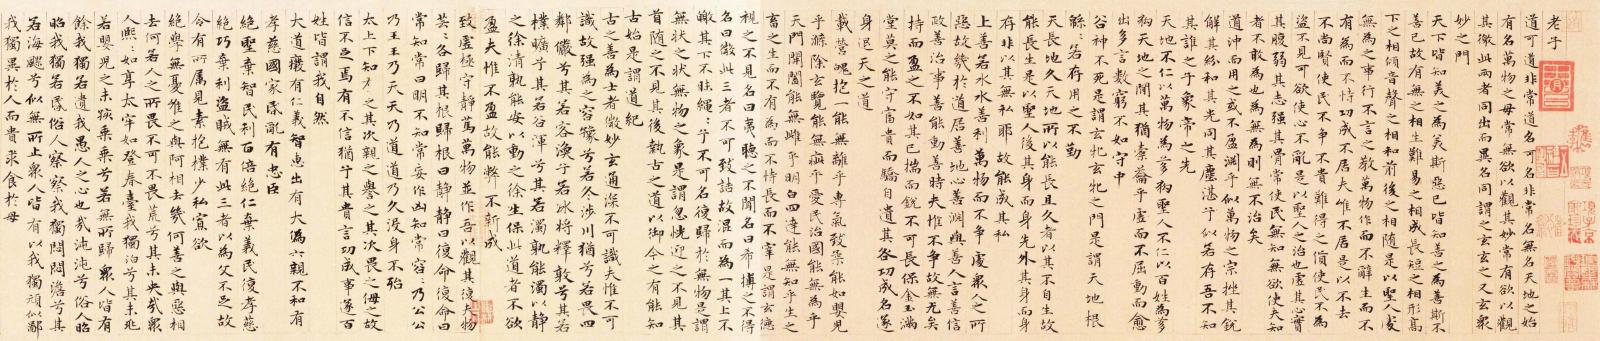 老子
道可道非常道名可名非常名無名天地之始
有名萬物之母常無欲以觀其妙常有欲以觀
其徼此兩者同出而異名同謂之玄玄之又玄衆
妙之門
天下皆知美之為美斯惡已皆知善之為善斯不
善已故有無之相生難易之相成長短之相形高
下之相傾音聲之相和前後之相隨是以聖人處
無為之事行不言之教萬物作而不辭生而不
有為而不恃功成不居夫唯不居是以不去
不尚賢使民不爭不貴難得之貨使民不為
盜不見可欲使心不亂是以聖人之治也虛其心實
其腹弱其志強其骨常使民無知無欲使夫知
者不敢為也為無為則無不治矣
道沖而用之或不盈淵乎似萬物之宗挫其銳
解其紛和其光同其塵湛兮似若存吾不知
其誰之子象帝之先
天地不仁以萬物為芻狗聖人不仁以百姓為芻
狗天地之間其猶橐籥乎虛而不屈動而愈
出多言數窮不如守中
谷神不死是謂玄牝玄牝之門是謂天地根
綿〻若存用之不勤
天長地久天地所以能長且久者以其不自生故
能長生是以聖人後其身而身先外其身而身
存非以其無私耶故能成其私
上善若水水善利萬物而不爭處衆人之所
惡故幾於道居善地心善淵與善人言善信
政善治事善能動善時夫惟不爭故無尤矣
持而盈之不如其已揣而銳之不可長保金玉滿
堂莫之能守富貴而驕自遺其咎功成名遂
身退天之道
載營魄抱一能無離乎專氣致柔能如嬰兒
乎滌除玄覽能無疵乎愛民治國能無為乎
天門開闔能無雌乎明白四達能無知乎生之
畜之生而不有為而不恃長而不宰是謂玄德
視之不見名曰夷聽之不聞名曰希搏之不得
名曰微此三者不可致詰故混而為一其上不
皦其下不昧繩〻兮不可名復歸於無物是謂
無狀之狀無物之象是謂忽恍迎之不見其
首隨之不見其後執古之道以御今之有能知
古始是謂道紀
古之善為士者微妙玄通深不可識夫惟不可
識故強為之容豫兮若冬涉川猶兮若畏四
鄰儼兮其若容渙兮若冰將釋敦兮其若
樸曠兮其若谷渾兮其若濁孰能濁以靜
之徐清孰能安以動之徐生保此道者不欲
盈夫惟不盈故能弊不新成
致虛極守靜篤萬物並作吾以觀其復夫物
芸〻各歸其根歸根曰靜靜曰復命復命曰
常知常曰明不知常妄作凶知常容〻乃公公
乃王王乃天天乃道道乃久沒身不殆
太上下知有之其次親之譽之其次畏之侮之故
信不足焉有不信猶兮其貴言功成事遂百
姓皆謂我自然
大道廢有仁義智惠出有大偽六親不和有
孝慈國家昏亂有忠臣
絕聖棄智民利百倍絕仁棄義民復孝慈
絕巧棄利盜賊無有此三者以為文不足故
令有所屬見素抱樸少私寡欲
絕學無憂唯之與阿相去幾何善之與惡相
去何若人之所畏不可不畏荒兮其未央哉衆
人熙〻如享太牢如登春臺我獨泊兮其未兆
若嬰兒之未孩乘乘兮若無所歸衆人皆有
餘我獨若遺我愚人之心也哉沌沌兮俗人昭
昭我獨若昏俗人察察我獨悶悶澹兮其
若海飂兮似無所止衆人皆有以我獨頑似鄙
我獨異於人而貴求食於母